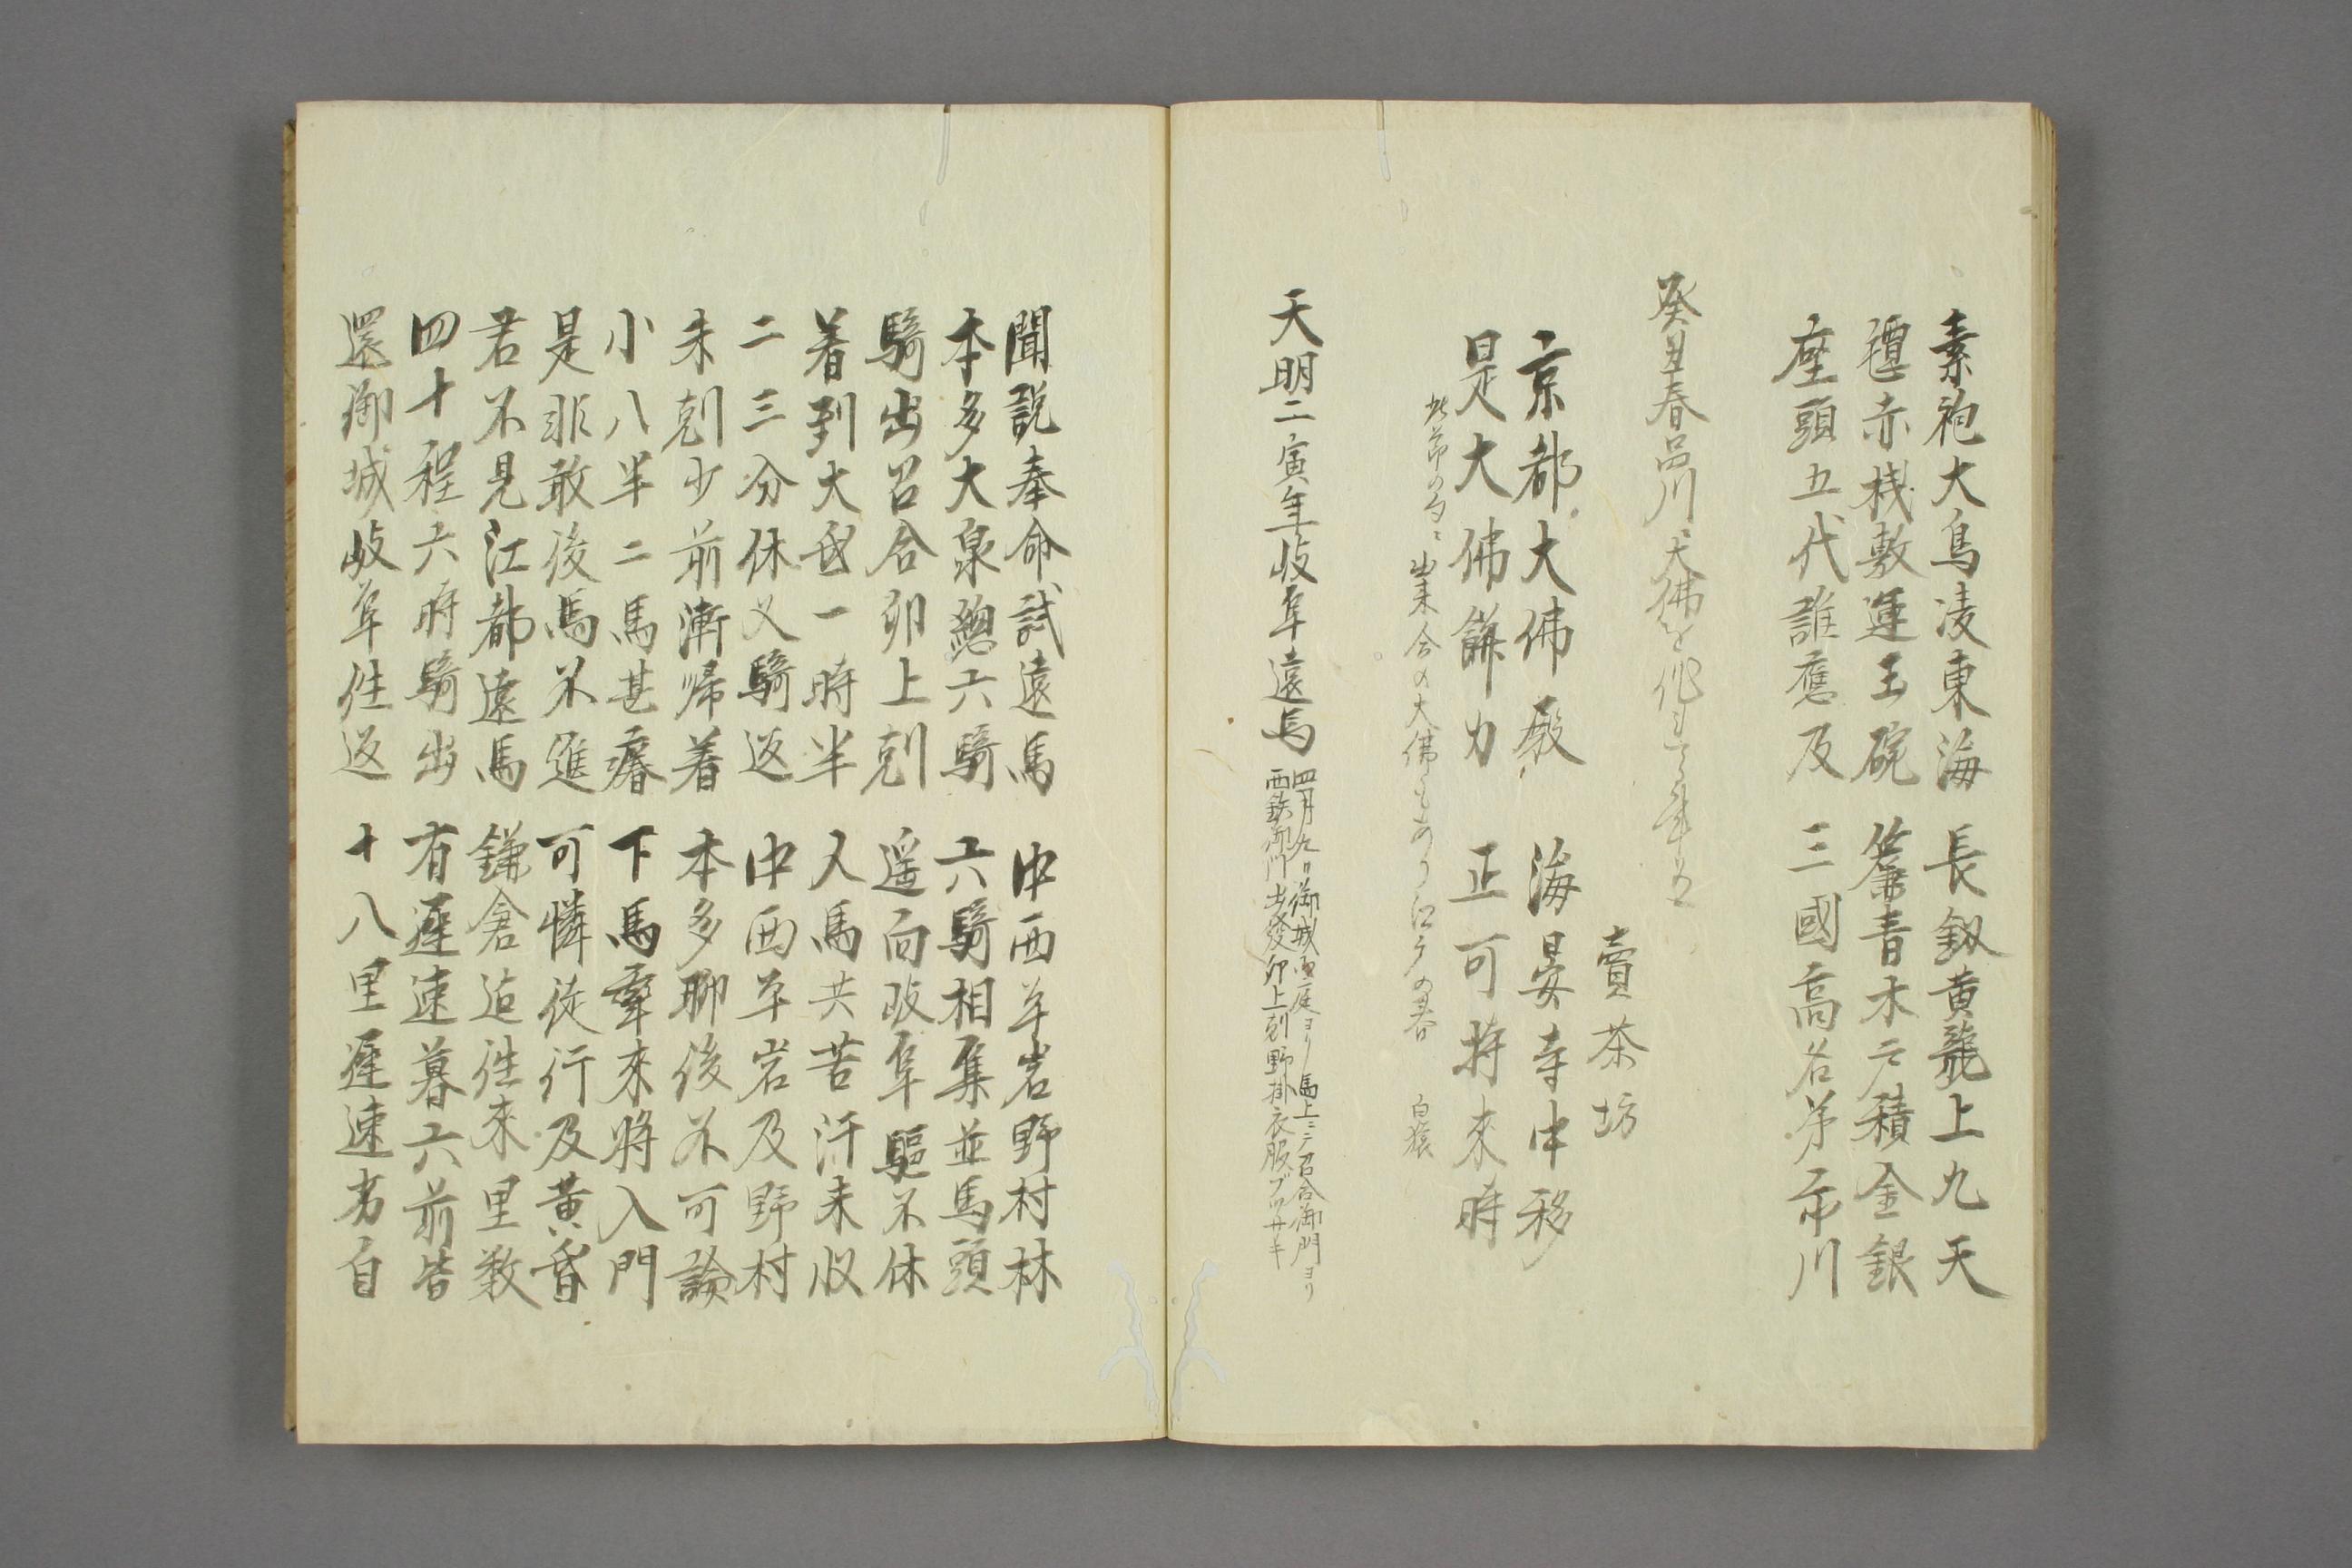 素袍大鳥凌東海　長釼黄龍上九天
氊赤桟敷運玉碗　簾青木戸積金銀
座頭五代誰應及　三國高名弟市川
癸丑春品川大佛を作
賣茶坊
京都大佛殿　海晏寺中移
是大佛餅力　正可持来時
出来合の大佛もあり江戸の春　白猿
天明二寅年岐阜遠馬
四月九日御城西庭ヨリ馬上ニテ召合御門ヨリ
西鉄御門出發卯上剋野掛衣服ブツサキ
聞説奉命試遠馬　中西羊岩野村林
本多大泉總六騎　六騎相集並馬頭
騎出召合卯上剋　遥向岐阜驅不休
着到大一時半　人馬共苦汗未収
二三分休又騎返　中西羊岩及野村
未剋少前漸帰着　本多聊後不可論
小八半二馬甚瘏　下馬牽来將入門
是非敢後馬不進　可憐徒行及黄昏
君不見江都遠馬　鎌倉迠往来里数
四十程六時騎出　有遲速暮六前皆
還御城岐阜往返　十八里遲速者自